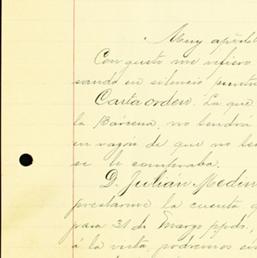 Muy
Con gusto me refiero
en silencio
Carta orden. La que
la Bárcena, no tendrá
en razón de que no
se le compraba.
D. Julián Medin
prestarme la cuenta
para 31 de Marzo ppdo,
á la vista podremos